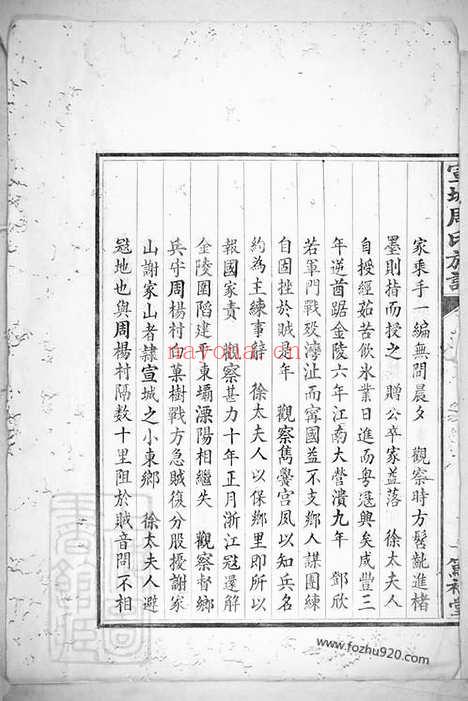 宣城周氏族譜
篤祜堂
家乘手一編無問晨夕　觀察時方髫齔進楮
墨則指而授之　贈公卒家益落　徐太夫人
自授經茹苦飲氷業日進而粵寇興矣咸豐三
年逆酋踞金陵六年江南大營潰九年　鄧欣
若軍門戰歿灣沚而甯國益不支鄉人謀團練
自固挫於賊是年　觀察雋黌宮夙以知兵名
約為主練事辭　徐太夫人以保鄉里即所以
報國家責　觀察甚力十年正月浙江寇還解
金陵圍陷建平東壩溧陽相繼失　觀察督鄉
兵守周楊村白菓樹戰方急賊復分股擾謝家
山謝家山者隸宣城之小東鄉　徐太夫人避
寇地也與周楊村隔數十里阻於賊音問不相
nayona.cn
www.fozhu920.com